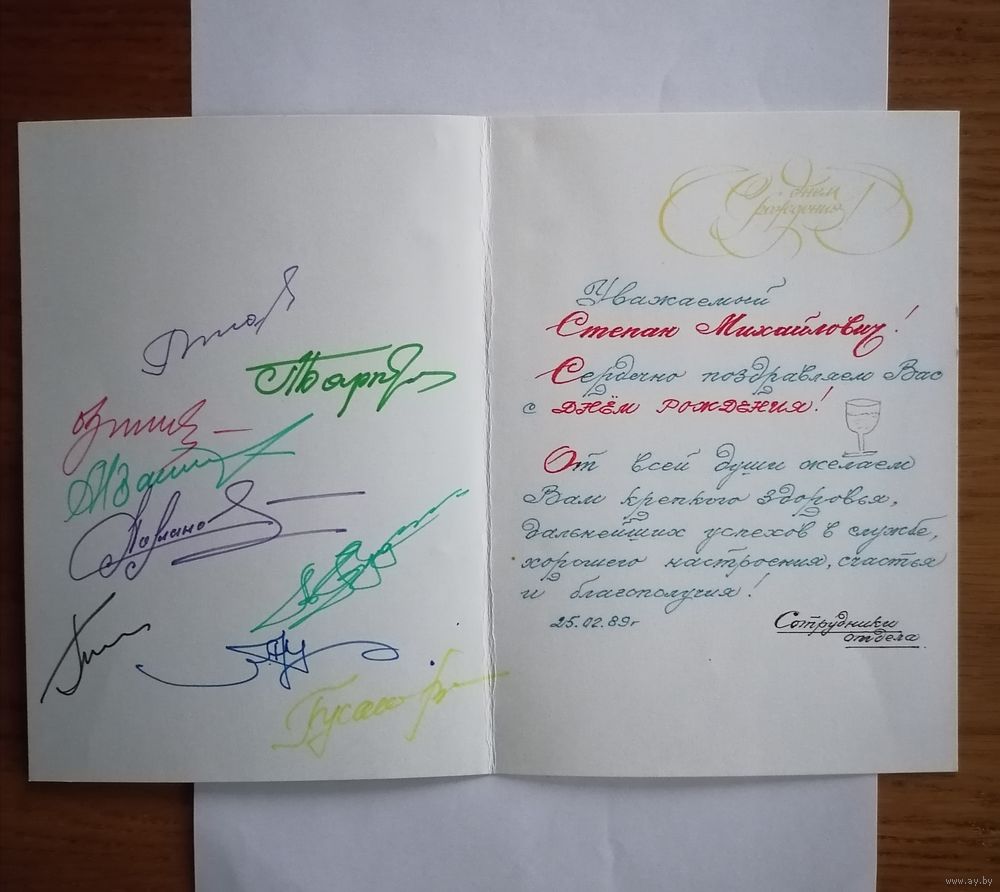 С днём
рождения!
Уважаемый
Степан Михайлович!
Сердечно поздравляем Вас
с ДНЁМ РОЖДЕНИЯ!
От всей души желаем
Вам крепкого здоровья,
дальнейших успехов в службе,
хорошего настроения, счастья
и благополучия!
25.02.89г
Сотрудники
отдела.
www.ay.by